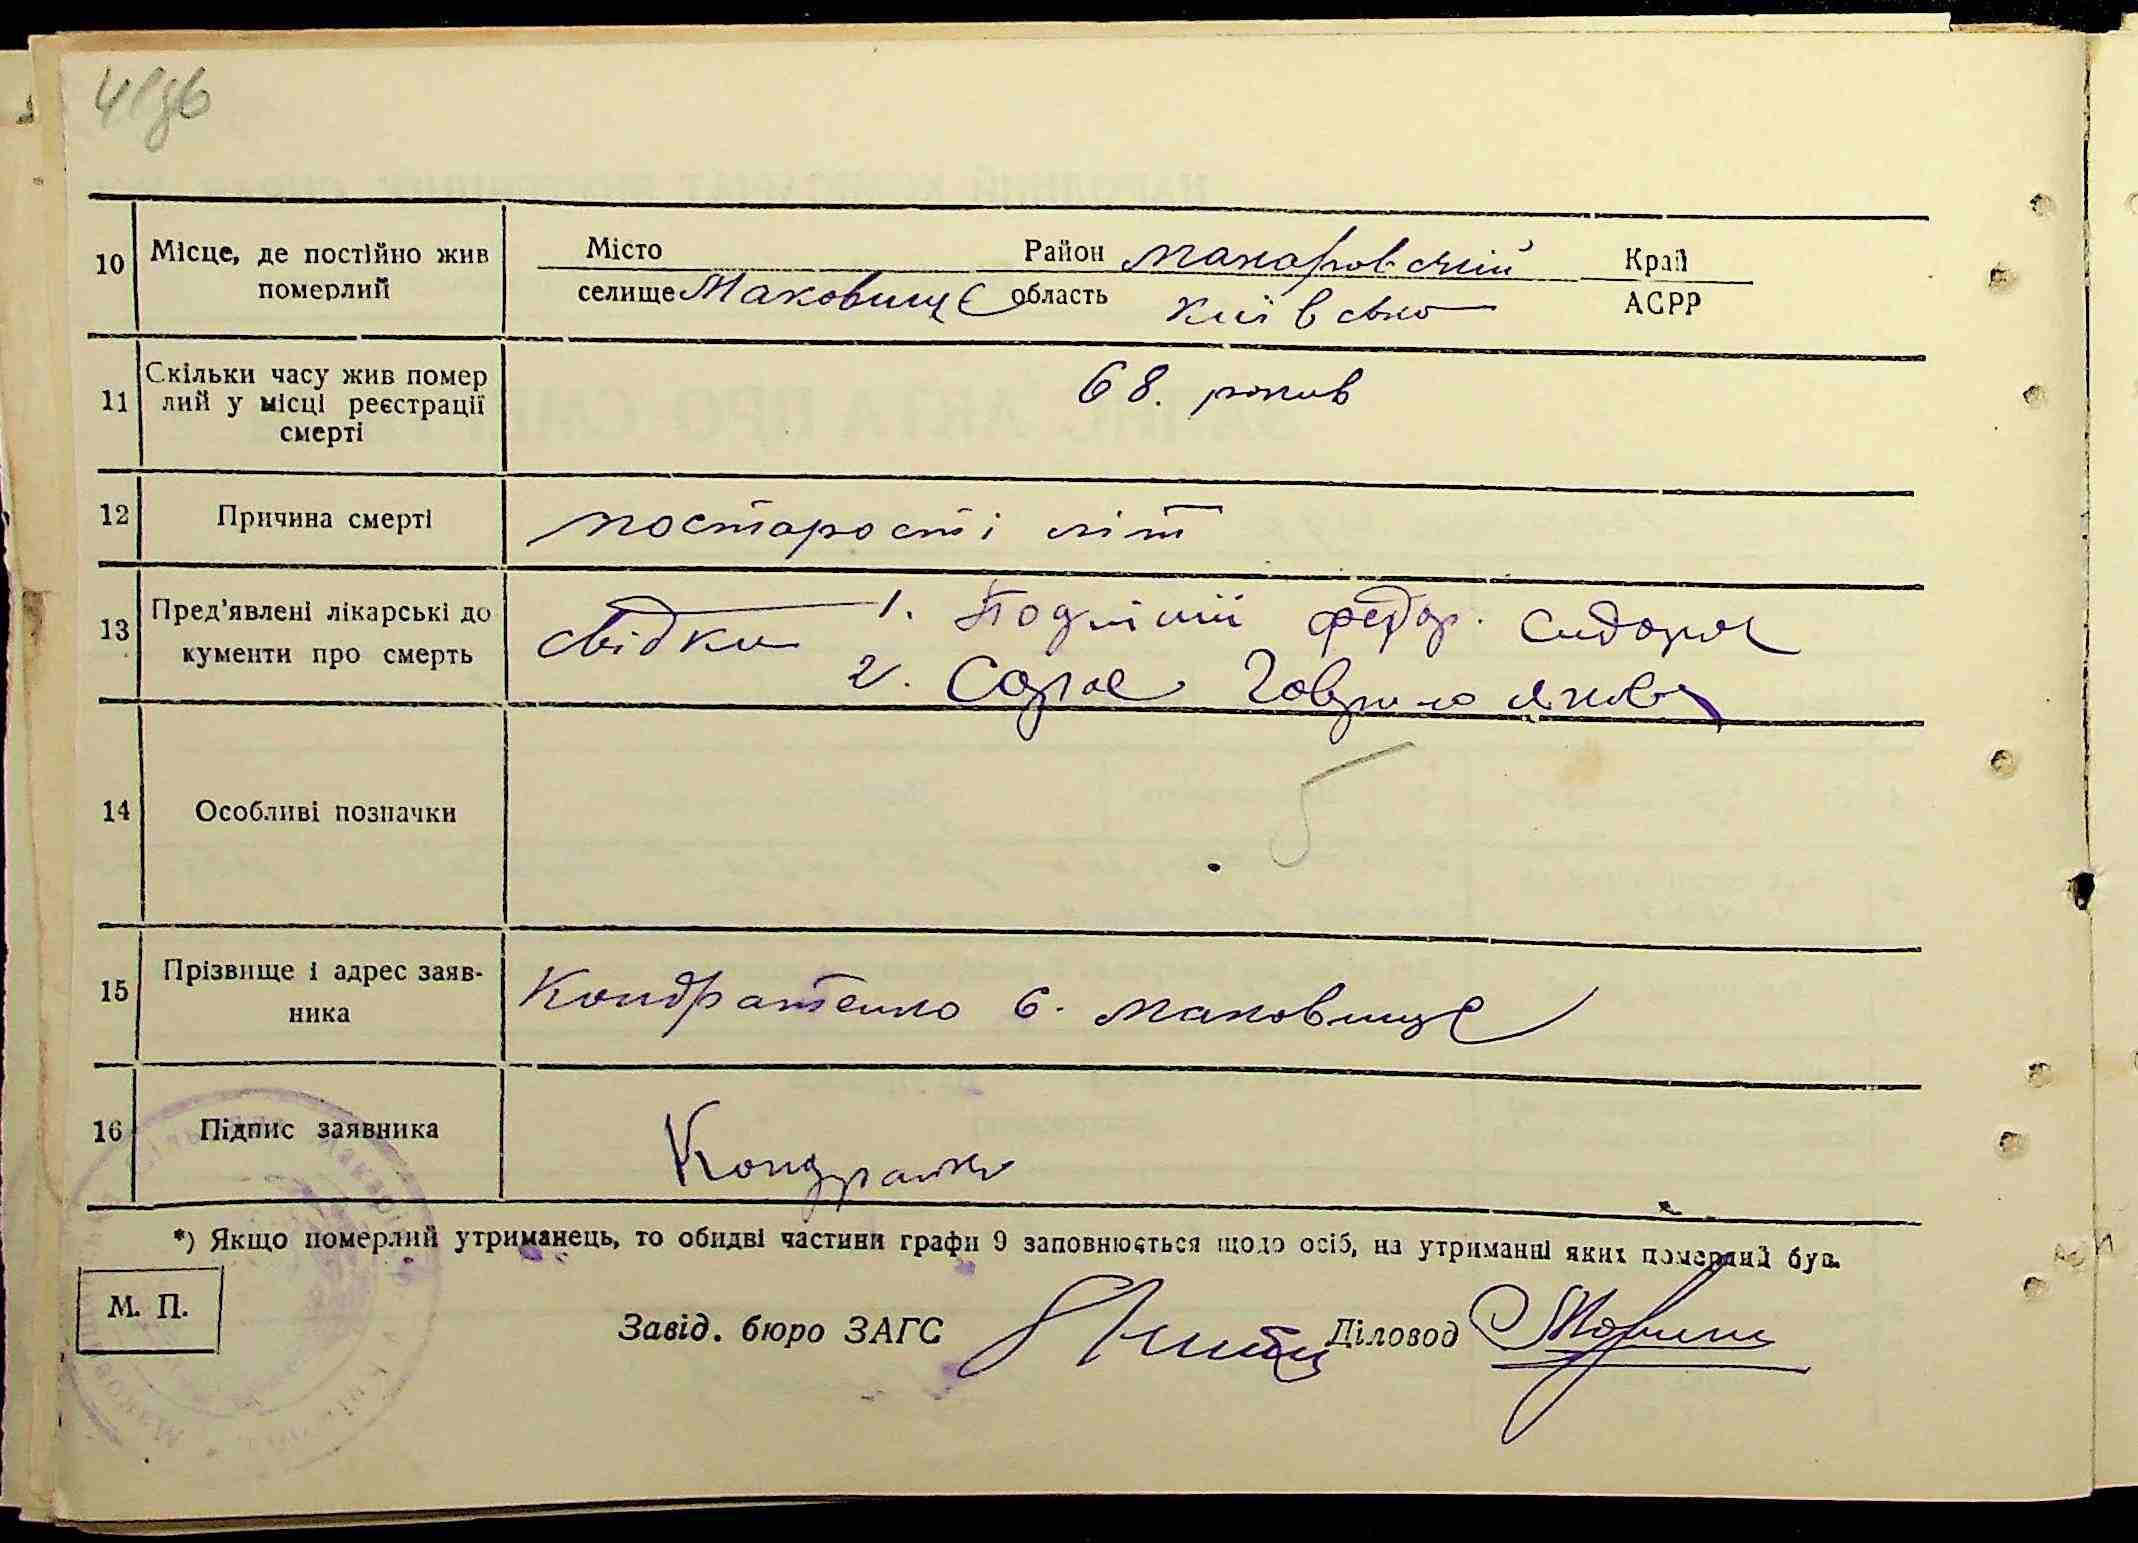 10 Місце, де постійно жив померлий
Місто Район Макаровський Край
селище Маковище область Київсько АСРР
11 Скільки часу жив помер
лий у місці реєстрації
смерті
68. років
12 Причина смерті
постарості літ
13 Пред’явлені лікарські до
кументи про смерть
свідки 1. Федор. Сидоров
2. Гаврило Яков
14 Особливі позначки
15 Прізвище і адрес заяв-
ника
Кондратенко с. Маковище
16 Підпис заявника
*) Якщо померлий утриманець, то обидві частини графи 9 заповнюється щодо осіб, на утриманні яких померлий був.
М. П.
Завід. бюро ЗАГС Діловод